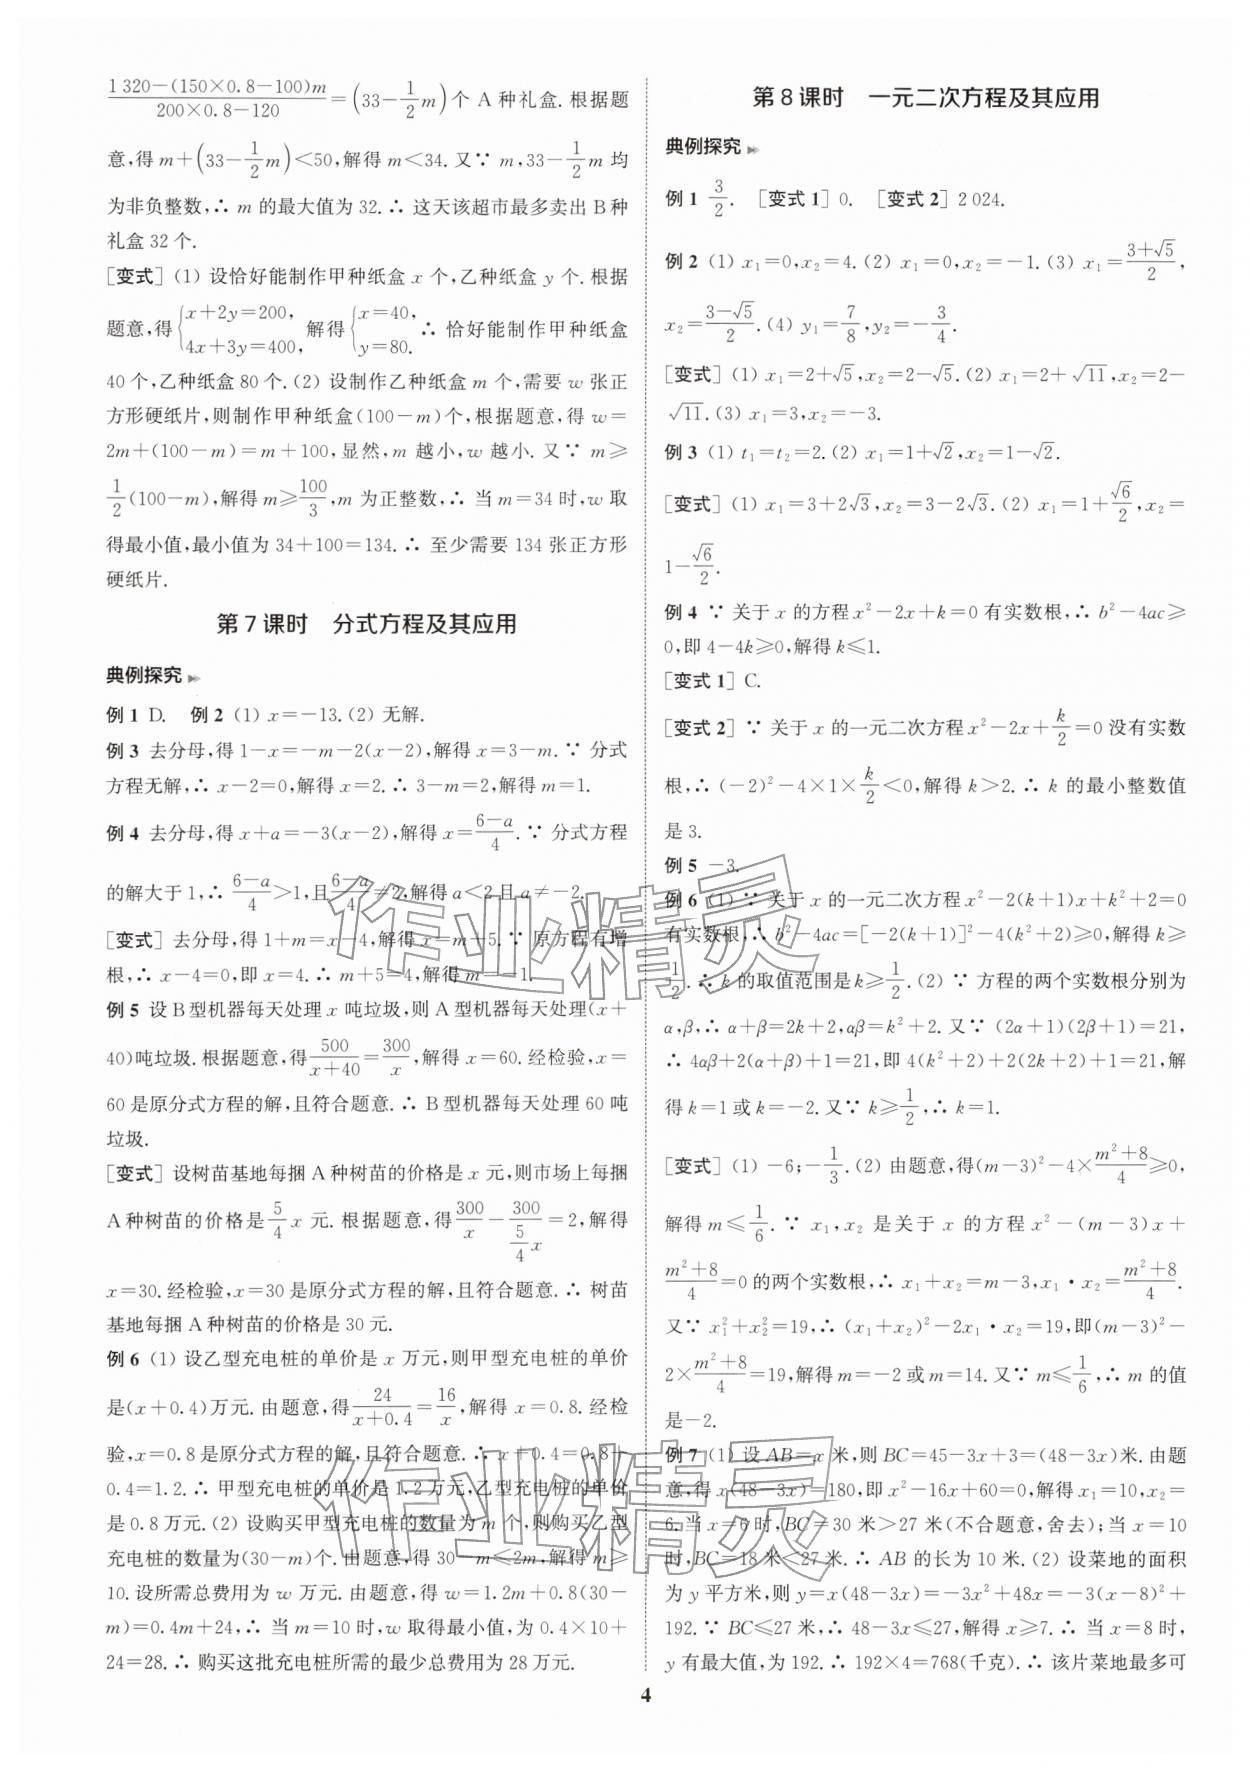 $\frac{1\,320-(150×0.8-100)m}{200×0.8-120}=\left(33-\frac{1}{2}m\right)$个 A 种礼盒. 根据题
意,得 $m+\left(33-\frac{1}{2}m\right)<50$,解得 $m<34$. 又∵ $m,33-\frac{1}{2}m$ 均
为非负整数,∴ m 的最大值为 32. ∴ 这天该超市最多卖出 B 种
礼盒 32 个.
[变式] (1) 设恰好能制作甲种纸盒 x 个,乙种纸盒 y 个. 根据
题意,得 $\begin{cases}x+2y=200,\\4x+3y=400,\end{cases}$ 解得 $\begin{cases}x=40,\\y=80.\end{cases}$ ∴ 恰好能制作甲种纸盒
40 个,乙种纸盒 80 个. (2) 设制作乙种纸盒 m 个,需要 w 张正
方形硬纸片,则制作甲种纸盒(100-m)个,根据题意,得 w=
2m+(100-m)=m+100,显然,m 越小,w 越小. 又∵ m≥
$\frac{1}{2}(100-m)$,解得 $m≥\frac{100}{3}$,m 为正整数,∴ 当 m=34 时,w 取
得最小值,最小值为 34+100=134. ∴ 至少需要 134 张正方形
硬纸片.
第 7 课时 分式方程及其应用
典例探究
例 1 D. 例 2 (1) x=-13. (2) 无解.
例 3 去分母,得 1-x=-m-2(x-2),解得 x=3-m. ∵ 分式
方程无解,∴ x-2=0,解得 x=2. ∴ 3-m=2,解得 m=1.
例 4 去分母,得 x+a=-3(x-2),解得 $x=\frac{6-a}{4}$. ∵ 分式方程
的解大于 1,∴ $\frac{6-a}{4}>1$,且$\frac{6-a}{4}≠2$,解得 a<2 且 a≠-2.
[变式] 去分母,得 1+m=x-4,解得 x=m+5. ∵ 原方程有增
根,∴ x-4=0,即 x=4. ∴ m+5=4,解得 m=-1.
例 5 设 B 型机器每天处理 x 吨垃圾,则 A 型机器每天处理(x+
40)吨垃圾. 根据题意,得$\frac{500}{x+40}=\frac{300}{x}$,解得 x=60. 经检验,x=
60 是原分式方程的解,且符合题意. ∴ B 型机器每天处理 60 吨
垃圾.
[变式] 设树苗基地每捆 A 种树苗的价格是 x 元,则市场上每捆
A 种树苗的价格是 $\frac{5}{4}x$ 元. 根据题意,得$\frac{300}{x}-\frac{300}{\frac{5}{4}x}=2$,解得
x=30. 经检验,x=30 是原分式方程的解,且符合题意. ∴ 树苗
基地每捆 A 种树苗的价格是 30 元.
例 6 (1) 设乙型充电桩的单价是 x 万元,则甲型充电桩的单价
是(x+0.4)万元. 由题意,得$\frac{24}{x+0.4}=\frac{16}{x}$,解得 x=0.8. 经检
验,x=0.8 是原分式方程的解,且符合题意. ∴ x+0.4=0.8+
0.4=1.2. ∴ 甲型充电桩的单价是 1.2 万元,乙型充电桩的单价
是 0.8 万元. (2) 设购买甲型充电桩的数量为 m 个,则购买乙型
充电桩的数量为(30-m)个. 由题意,得 30-m≤2m,解得 m≥
10. 设所需总费用为 w 万元. 由题意,得 w=1.2m+0.8(30-
m)=0.4m+24,∴ 当 m=10 时,w 取得最小值,为 0.4×10+
24=28. ∴ 购买这批充电桩所需的最少总费用为 28 万元.
第 8 课时 一元二次方程及其应用
典例探究
例 1 $\frac{3}{2}$. [变式 1] 0. [变式 2] 2 024.
例 2 (1) $x_1=0,x_2=4$. (2) $x_1=0,x_2=-1$. (3) $x_1=\frac{3+\sqrt{5}}{2}$,
$x_2=\frac{3-\sqrt{5}}{2}$. (4) $y_1=\frac{7}{8},y_2=-\frac{3}{4}$.
[变式] (1) $x_1=2+\sqrt{5},x_2=2-\sqrt{5}$. (2) $x_1=2+\sqrt{11},x_2=2-$
$\sqrt{11}$. (3) $x_1=3,x_2=-3$.
例 3 (1) $t_1=t_2=2$. (2) $x_1=1+\sqrt{2},x_2=1-\sqrt{2}$.
[变式] (1) $x_1=3+2\sqrt{3},x_2=3-2\sqrt{3}$. (2) $x_1=1+\frac{\sqrt{6}}{2},x_2=$
$1-\frac{\sqrt{6}}{2}$.
例 4 ∵ 关于 x 的方程 $x^2-2x+k=0$ 有实数根,∴ $b^2-4ac≥$
0,即 4-4k≥0,解得 k≤1.
[变式 1] C.
[变式 2] ∵ 关于 x 的一元二次方程 $x^2-2x+\frac{k}{2}=0$ 没有实数
根,∴ $(-2)^2-4×1×\frac{k}{2}<0$,解得 k>2. ∴ k 的最小整数值
是 3.
例 5 -3.
例 6 (1) ∵ 关于 x 的一元二次方程 $x^2-2(k+1)x+k^2+2=0$
有实数根,∴ $b^2-4ac=[-2(k+1)]^2-4(k^2+2)≥0$,解得 k≥
$\frac{1}{2}$. ∴ k 的取值范围是 $k≥\frac{1}{2}$. (2) ∵ 方程的两个实数根分别为
α,β,∴ $α+β=2k+2,αβ=k^2+2$. 又∵ (2α+1)(2β+1)=21,
∴ 4αβ+2(α+β)+1=21,即 $4(k^2+2)+2(2k+2)+1=21$,解
得 k=1 或 k=-2. 又∵ $k≥\frac{1}{2}$,∴ k=1.
[变式] (1) -6;$-\frac{1}{3}$. (2) 由题意,得$(m-3)^2-4×\frac{m^2+8}{4}≥0$,
解得 $m≤\frac{1}{6}$. ∵ $x_1,x_2$ 是关于 x 的方程 $x^2-(m-3)x+$
$\frac{m^2+8}{4}=0$ 的两个实数根,∴ $x_1+x_2=m-3,x_1·x_2=\frac{m^2+8}{4}$.
又∵ $x_1^2+x_2^2=19$,∴ $(x_1+x_2)^2-2x_1·x_2=19$,即$(m-3)^2-$
$2×\frac{m^2+8}{4}=19$,解得 m=-2 或 m=14. 又∵ $m≤\frac{1}{6}$,∴ m 的值
是-2.
例 7 (1) 设 AB=x 米,则 BC=45-3x+3=(48-3x)米. 由题
意,得 x(48-3x)=180,即 $x^2-16x+60=0$,解得 $x_1=10,x_2=$
6. 当 x=6 时,BC=30 米>27 米(不合题意,舍去);当 x=10
时,BC=18 米<27 米. ∴ AB 的长为 10 米. (2) 设菜地的面积
为 y 平方米,则 $y=x(48-3x)=-3x^2+48x=-3(x-8)^2+$
192. ∵ BC≤27 米,∴ 48-3x≤27,解得 x≥7. ∴ 当 x=8 时,
y 有最大值,为 192. ∴ 192×4=768(千克). ∴ 该片菜地最多可
4
作业精灵
作业精灵